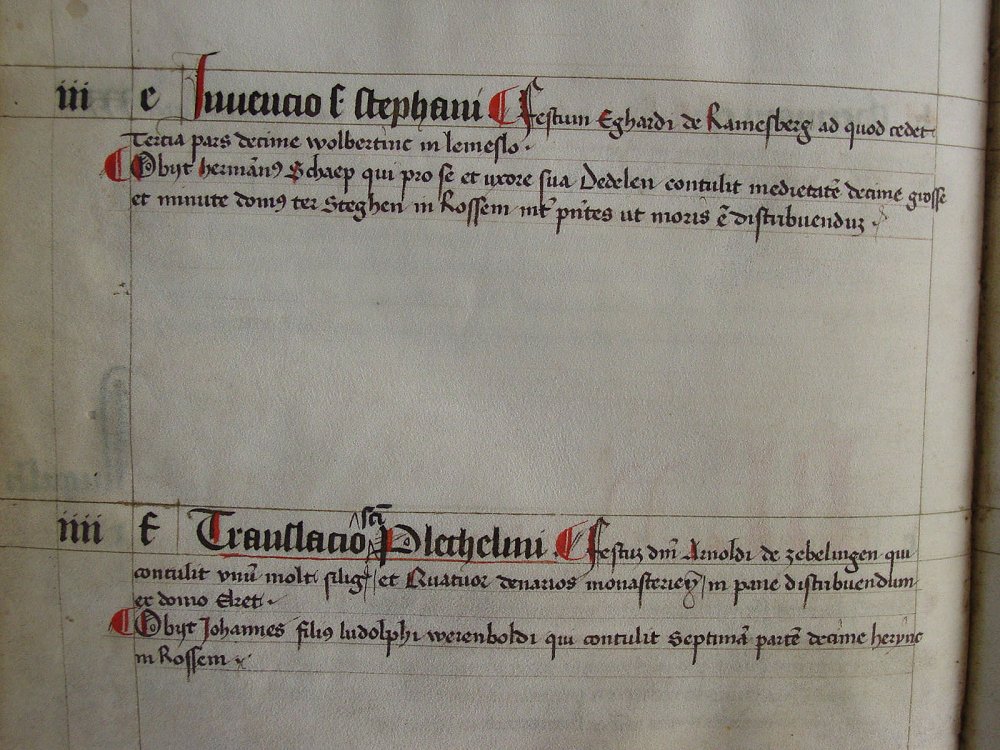 iii e Inuencio s. stephani Festum Eghardi de Ramesberg ad quod cedet
Tercia pars decime wolbertinc in lemeslo.
Obijt hermãnꝰ Schaep qui pro se et uxore sua Dedelen contulit medietatẽ decime grosse
et minute domꝰ ter Steghen in Rossem int̃ pñtes ut moris ẽ distribuenduz.
iiii f Translacio sct̃i Plechelmi. Festuz dñi Arnoldi de zebelingen qui
contulit vnũ molt siligĩs et Quatuor denarios monasterieñ in pane distribuendum
ex domo Elzet.
Obijt Johannes filius ludolphi werenboldi qui contulit Septimã partẽ decime herync
in Rossem